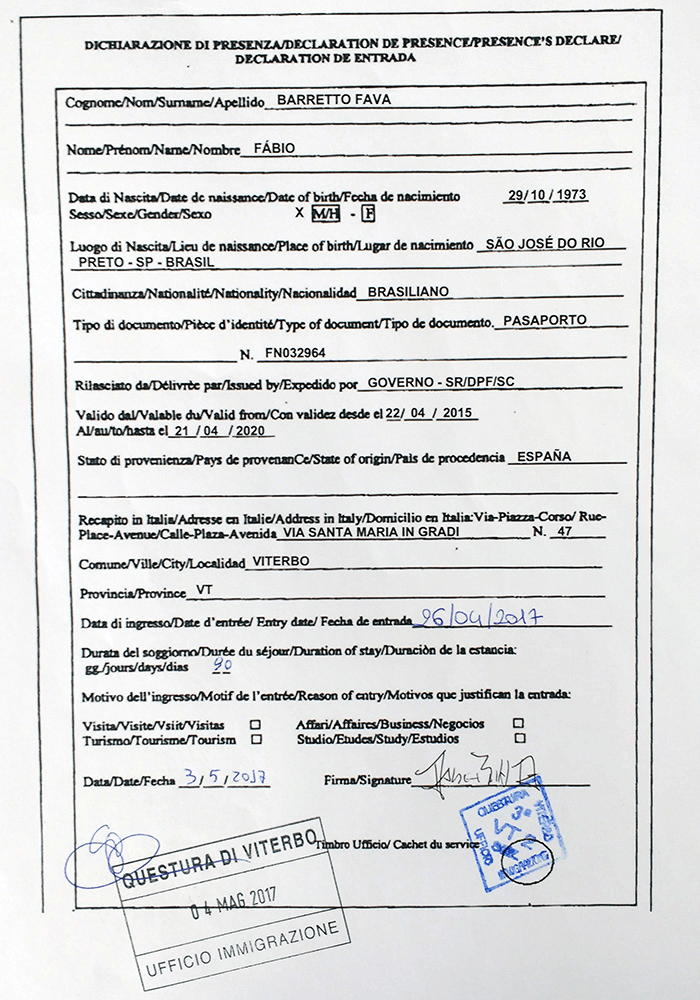 DICHIARAZIONE DI PRESENZA/DECLARATION DE PRESENCE/PRESENCE'S DECLARE/
DECLARATION DE ENTRADA
Cognome/Nom/Surname/Apellido BARRETTO FAVA
Nome/Prénom/Name/Nombre FÁBIO
Data di Nascita/Date de naissance/Date of birth/Fecha de nacimiento 29/10/1973
Sesso/Sexe/Gender/Sexo X M/H - F
Luogo di Nascita/Lieu de naissance/Place of birth/Lugar de nacimiento SÃO JOSÉ DO RIO
PRETO - SP - BRASIL
Cittadinanza/Nationalité/Nationality/Nacionalidad BRASILIANO
Tipo di documento/Pièce d'identité/Type of document/Tipo de documento. PASAPORTO
N. FN032964
Rilasciato da/Délivrée par/Issued by/Expedido por GOVERNO - SR/DPF/SC
Valido dal/Valable du/Valid from/Con validez desde el 22/ 04 / 2015
Al/au/to/hasta el 21 / 04 / 2020
Stato di provenienza/Pays de provenanCe/State of origin/Pais de procedencia ESPAÑA
Recapito in Italia/Adresse en Italie/Address in Italy/Domicilio en Italia:Via-Piazza-Corso/ Rue-
Place-Avenue/Calle-Plaza-Avenida VIA SANTA MARIA IN GRADI N. 47
Comune/Ville/City/Localidad VITERBO
Provincia/Province VT
Data di ingresso/Date d'entrée/ Entry date/ Fecha de entrada 26/04/2017
Durata del soggiorno/Durée du séjour/Duration of stay/Duraciòn de la estancia:
gg./jours/days/dias 90
Motivo dell'ingresso/Motif de l'entrée/Reason of entry/Motivos que justifican la entrada:
Visita/Visite/Vsiit/Visitas Affari/Affaires/Business/Negocios
Turismo/Tourisme/Tourism Studio/Etudes/Study/Estudios
Data/Date/Fecha 3/5/2017 Firma/Signature
Timbro Ufficio/ Cachet du service
QUESTURA DI VITERBO
04 MAG 2017
UFFICIO IMMIGRAZIONE
QUESTURA VITERBO
UFFICIO
IMMIGRAZIONE